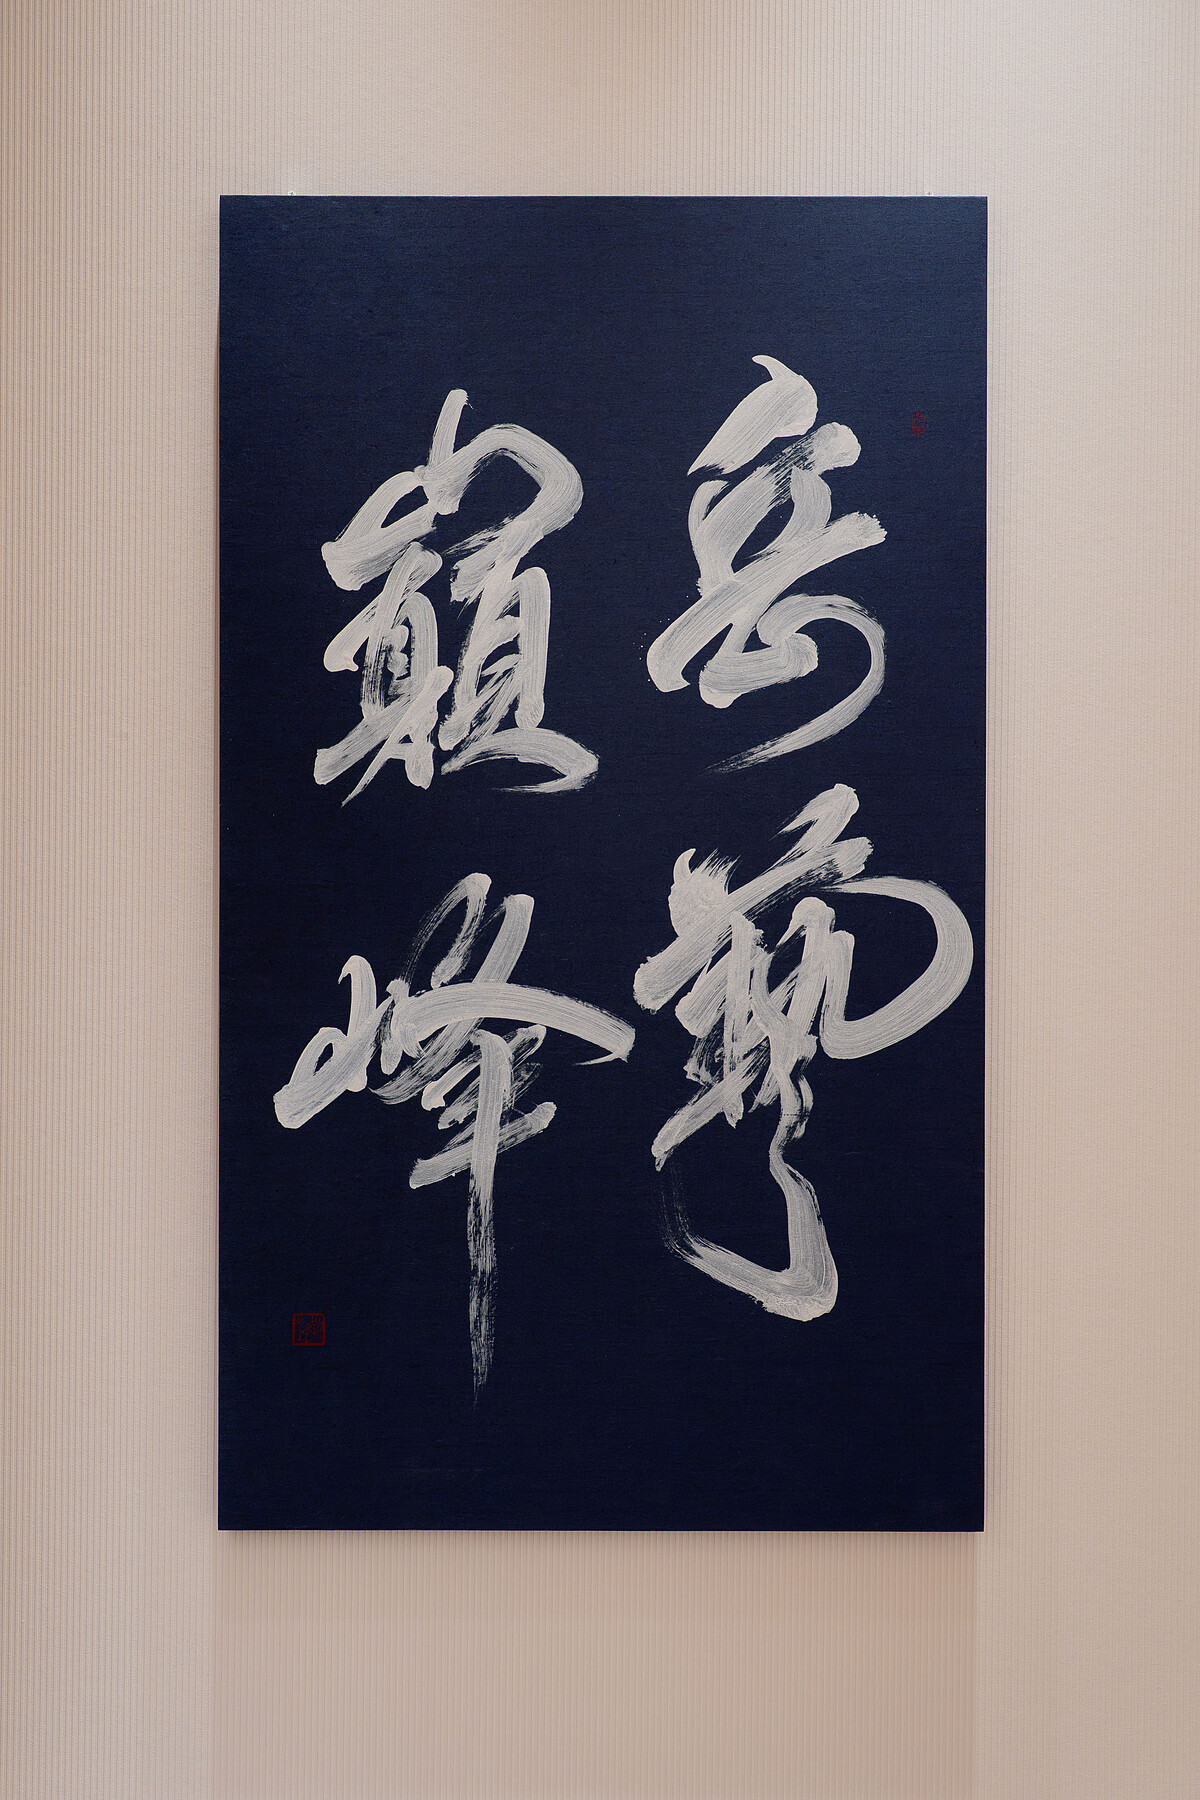 岳藝
巔峰